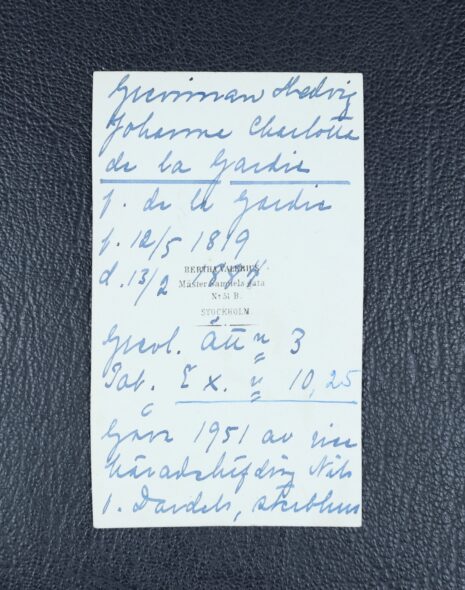 Grevinnan Hedvig
Johanna Charlotta
de la Gardie
f. de la Gardie
f. 12/5 1819
d. 13/2
BERTHA VALERIUS
Mäster Samuels gata
No 51 B.
STOCKHOLM
Grevl. ätt n 3
Tab. Ex. n 10,25
Gåva 1951 av vice
häradshöfding Nils